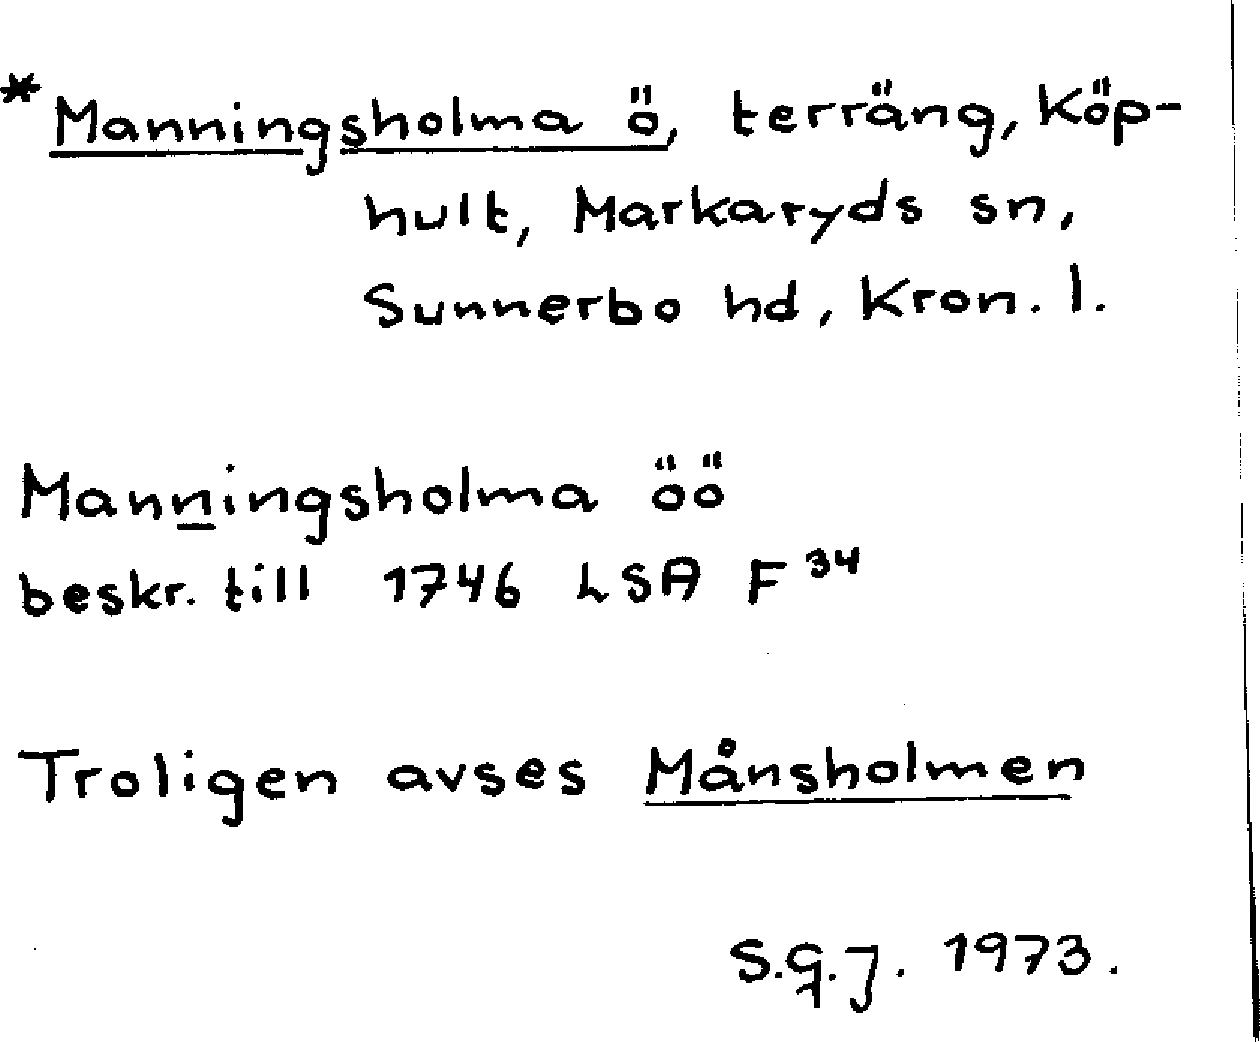 *Manningsholma ö, terräng, Köp-
hult, Markaryds sn,
Sunnerbo hd, Kron. l.
Manningsholma öö
beskr. till 1746 LSA F 34
Troligen avses Månsholmen
S.G.J. 1973.